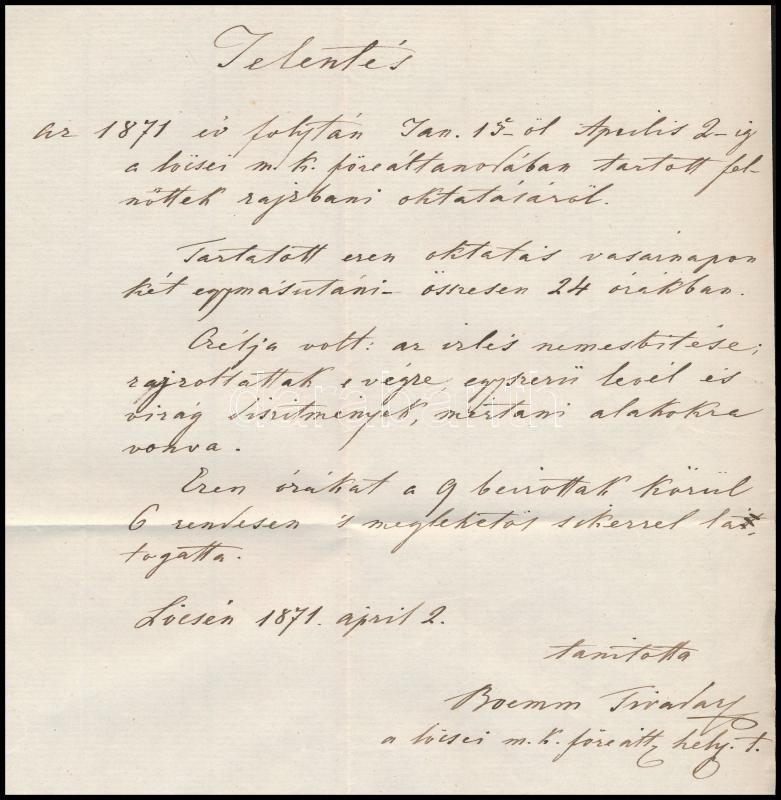 Jelentés
az 1871 év folytán Jan. 15-től Aprilis 2-ig
a lőcsei m. k. főreáltanodában tartott fel-
nőttek rajzbani oktatásáról.
Tartatott ezen oktatás vasárnapon
két egymásutáni- összesen 24 órákban.
Czélja volt: az izlés nemesbitése;
rajzoltattak e végre egyszerü levél és
virág diszitmények, mértani alakokra
vonva.
Ezen órákat a 9 beirottak közül
6 rendesen 's meglehetős sikerrel lát-
togatta.
Lőcsén 1871. april 2.
tanitotta
Boemm Tivadar
a lőcsei m. k. főreált. hely. t.
darabanth